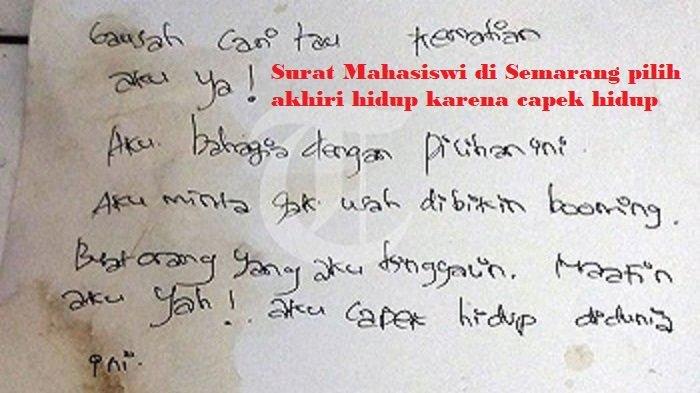 Gausah cari tau kematian
aku ya!
Surat Mahasiswi di Semarang pilih
akhiri hidup karena capek hidup
Aku bahagia dengan pilihan ini.
Aku minta gak usah dibikin booming.
Buat orang yang aku tinggalin. Maafin
aku yah! aku capek hidup didunia
ini.